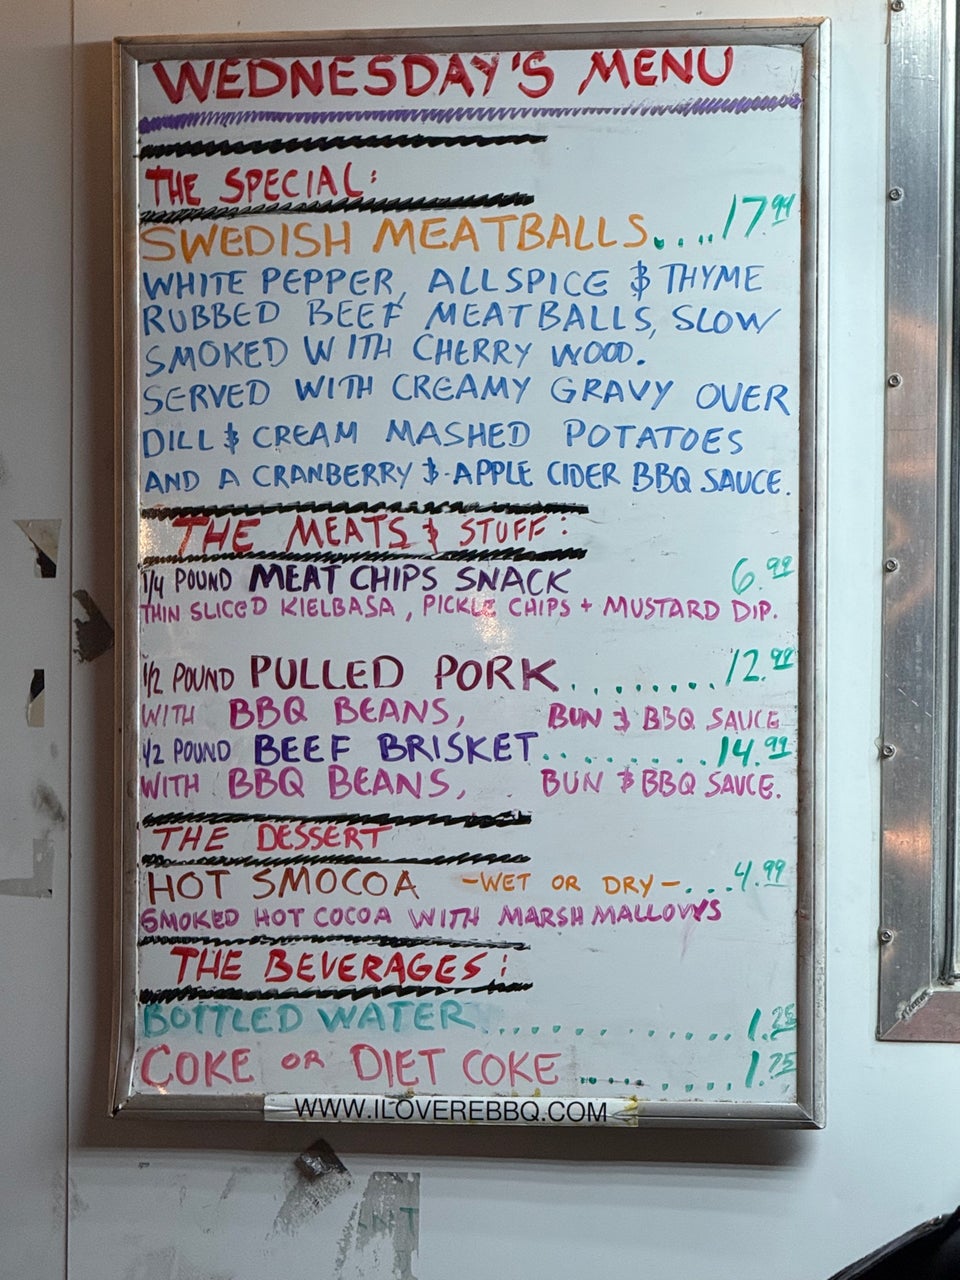 WEDNESDAY'S MENU
THE SPECIAL:
SWEDISH MEATBALLS....17.99
WHITE PEPPER, ALLSPICE & THYME
RUBBED BEEF MEATBALLS, SLOW
SMOKED WITH CHERRY WOOD.
SERVED WITH CREAMY GRAVY OVER
DILL & CREAM MASHED POTATOES
AND A CRANBERRY & APPLE CIDER BBQ SAUCE.
THE MEATS & STUFF:
1/4 POUND MEAT CHIPS SNACK 6.99
THIN SLICED KIELBASA, PICKLE CHIPS + MUSTARD DIP.
1/2 POUND PULLED PORK........12.99
WITH BBQ BEANS, BUN & BBQ SAUCE
1/2 POUND BEEF BRISKET.........14.99
WITH BBQ BEANS, BUN & BBQ SAUCE.
THE DESSERT
HOT SMOCOA -WET OR DRY-...4.99
SMOKED HOT COCOA WITH MARSHMALLOWS
THE BEVERAGES:
BOTTLED WATER..............1.25
COKE OR DIET COKE..........1.75
WWW.ILOVEREBBQ.COM